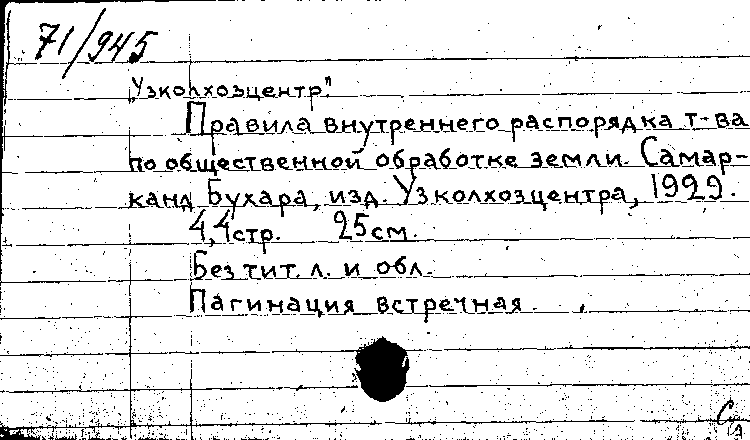 71/945
„Узколхозцентр."
Правила внутреннего распорядка т-ва
по общественной обработке земли. Самар-
канд Бухара, изд. Узколхозцентра, 1929.
4,4 стр. 25 см.
Без тит. л. и обл.
Пагинация встречная.